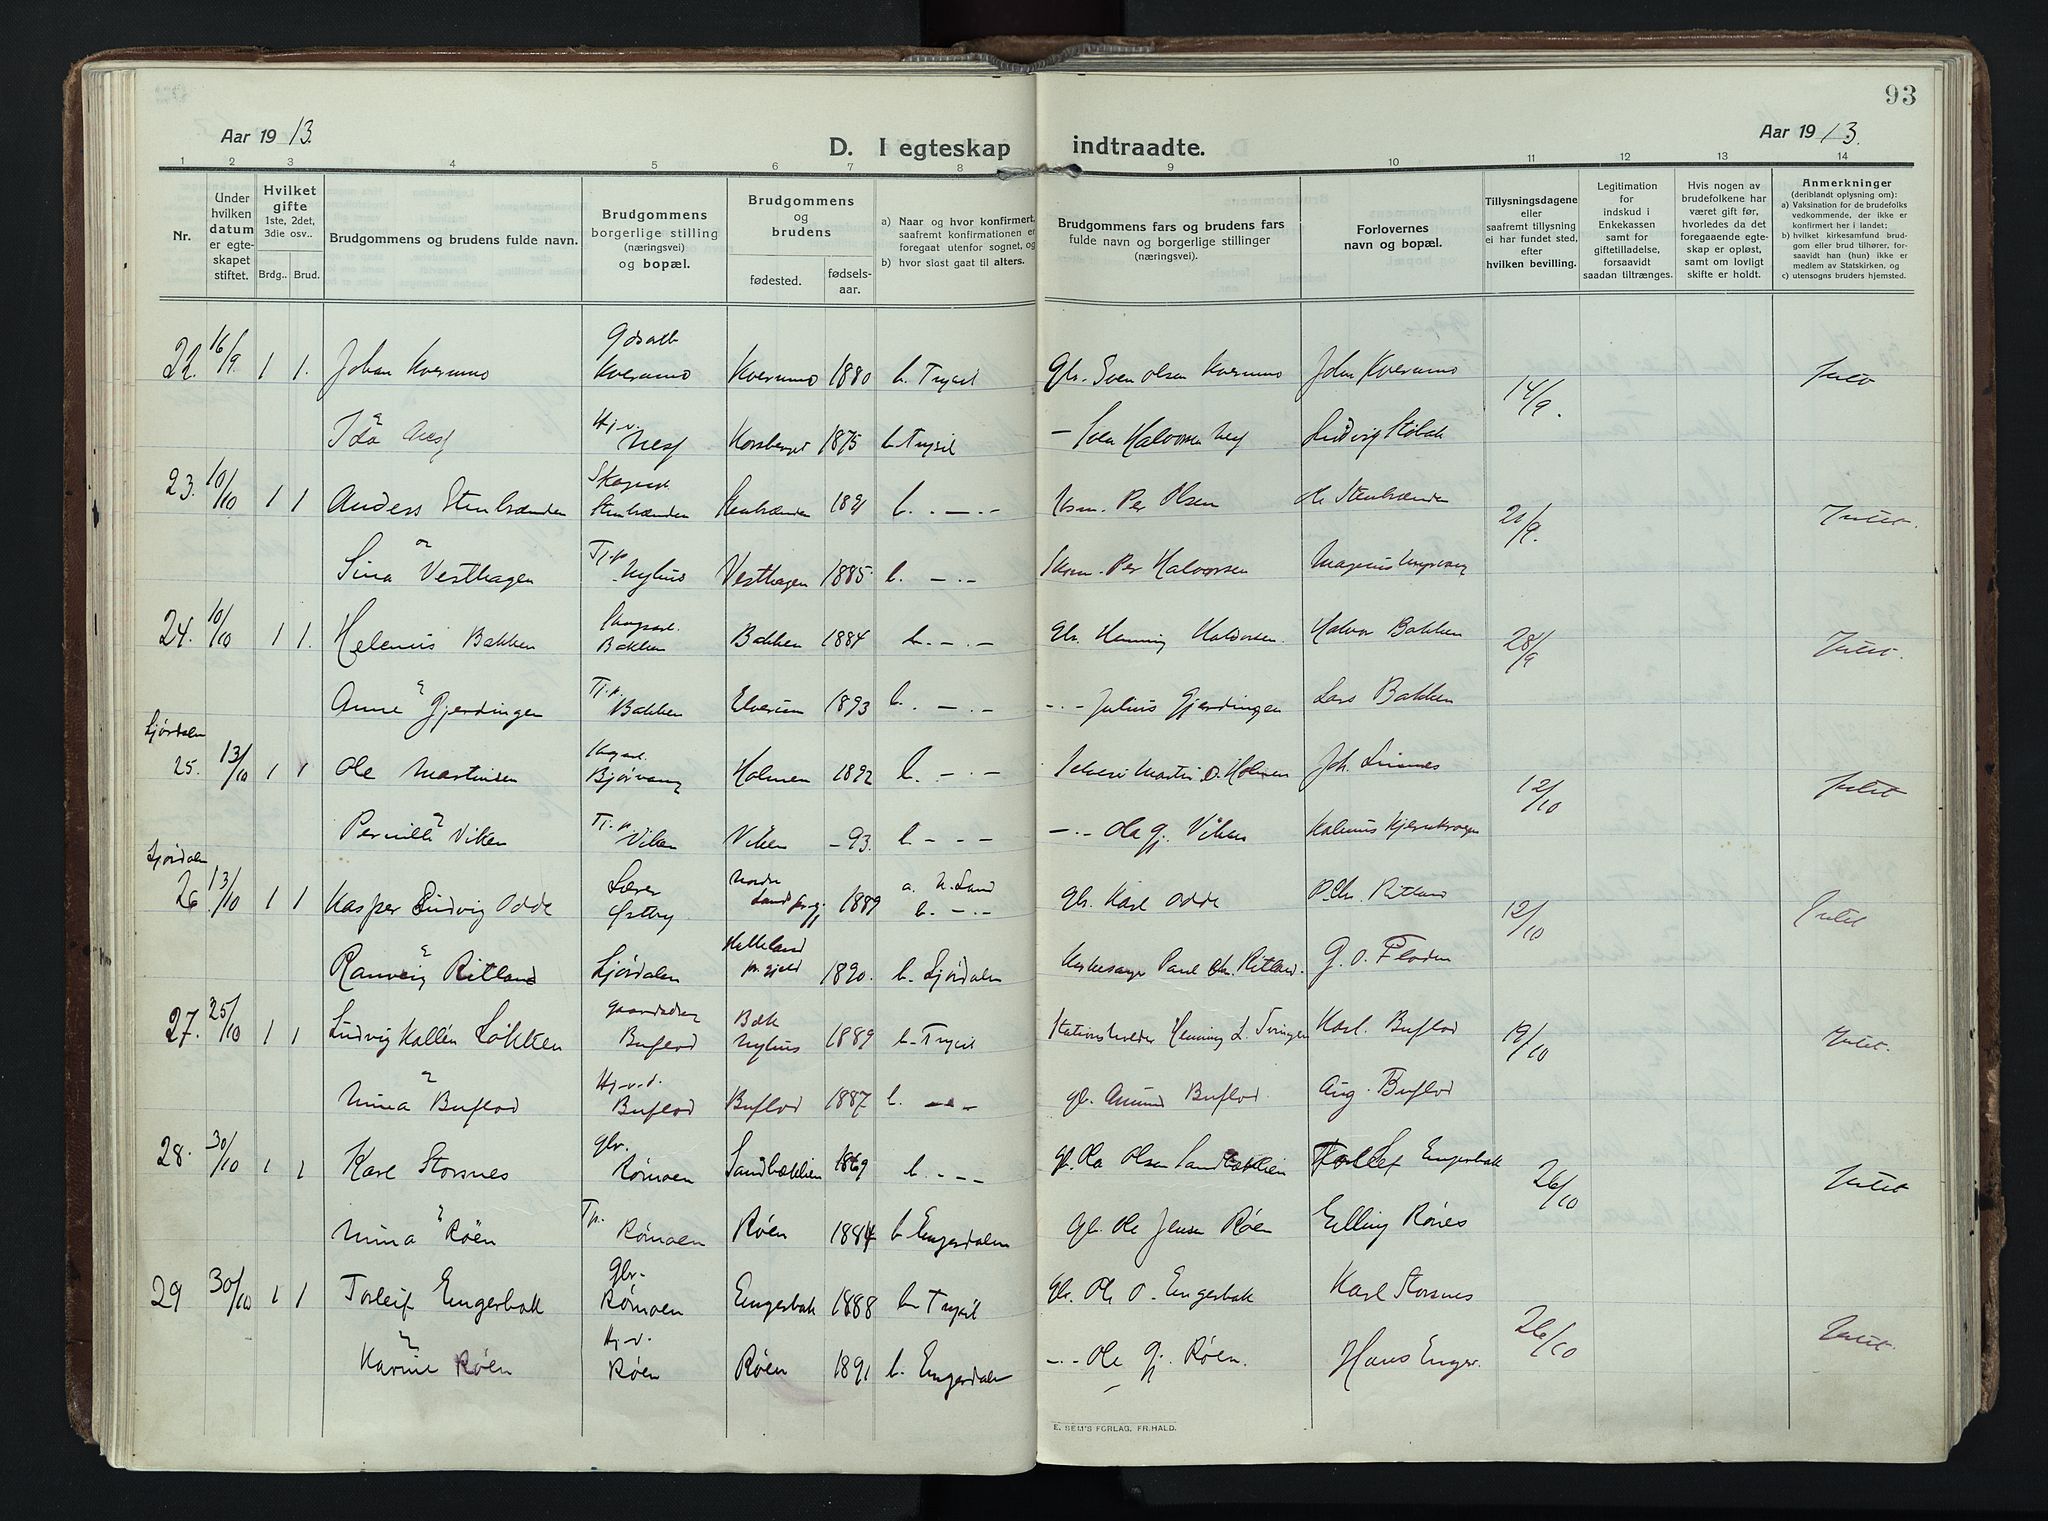 93
Aar 1913.
Aar 1913.
D. I egteskap indtraadte.
1 2 3 4 5 6 7 8 9 10 11 12 13 14
Nr.
Under hvilken datum er egteskapet stiftet.
Hvilket gifte
1ste, 2det, 3die osv..
Brdg.. Brud.
Brudgommens og brudens fulde navn.
Brudgommens borgerlige stilling (næringsvei) og bopæl.
Brudgommens og brudens
fødested.
fødselsaar.
a) Naar og hvor konfirmert, saafremt konfirmationen er foregaat utenfor sognet, og
b) hvor sidst gaat til alters.
Brudgommens fars og brudens fars fulde navn og borgerlige stillinger (næringsvei).
Forlovernes navn og bopæl.
Tillysningsdagene eller saafremt tillysning ei har fundet sted, efter hvilken bevilling.
Legitimation for indskud i Enkekassen samt for giftetilladelse, forsaavidt saadan tiltrænges.
Hvis nogen av brudefolkene har været gift før, hvorledes da det foregaaende egteskap er opløst, samt om lovligt skifte er holdt.
Anmerkninger
(deriblandt oplysning om):
a) Vaksination for de brudefolks vedkommende, der ikke er konfirmert her i landet;
b) hvilket kirkesamfund brudgom eller brud tilhører, forsaavidt han (hun) ikke er medlem av Statskirken, og
c) utensogns bruders hjemsted.
22. 16/9. 1 1. Johan Kverumo Kverumo Kverumo 1880 b. Trysil Gbr. Sven Olsen Kverumo John Kverumo 14/9.
Ida Nesf Hj.v. 1875 b. Trysil Sven Halvorsen Ludvig Støbak
23. 10/10 1 1 Anders Stenbrænden Stenbrænden Stenbrænden 1891 b. - . - Per Olsen Ole Stenbrænden 21/9. Intet.
Sina Vesthagen Tj.p. Nyhus Vesthagen 1885. b. - . - Per Halvorsen Magnus
24. 10/10 1 1. Helenus Bakken Bakken Bakken 1884 b. - . - Gbr. Henning Halvorsen. Halvor Bakken 28/9 Intet.
Anne Gjerdingen Tj.p. Bakken Elverum 1893 b. - . - - . - Julius Gjerdingen Lars Bakken
Ljørdalen
25. 13/10 1 1 Ole Martinsen Bjørvang Holmen 1892 b. - . - Selveier Martin O. Holmen Joh. Linnes 12/10 Intet
Pernille Viken Tj.p. Viken Viken - 93. b. - - - - . - Ola Gj. Viken
Ljørdalen
26. 13/10 1 1 Kasper Ludvig Odde Lærer Østby Nordre Land prgj 1889 a. N. Land b. - . - gbr. Karl Odde P. Chr. Ritland 12/10 Intet
Ranveig Ritland Ljørdalen Helleland pr.gjeld 1890. b. Ljørdalen Kirkesanger Paul Chr. Ritland. G. O. Floden
27. 25/10 1 1 Ludvig Hallén Løkken Buflod Bæk Nyhus 1889 b. Trysil Stationsholder Henning L. Karl. Buflod 19/10 Intet.
Mina Buflod Hj.v.d. Buflod Buflod 1887 b. - - - gb. Amund Buflod. Aug. Buflod
28. 30/10 1 1 Karl Storsnes gbr. Rømoen Sandbækken 1869 b. - - - gb. Ola Olsen Torleif Engerbak 26/10 Intet
Mina Røen Tp. Rømoen Røen 1884 b. Engerdalen gbr. Ole Jensen Røen Elling Rønes
29 30/10 1 1 Torleif Engerbak gbr. Rømoen Engerbak 1888 b. Trysil gbr. Ole O. Engerbak Karl Storsnes 26/10 Intet.
Karine Røen Hj.v. Røen Røen 1891 b. Engerdalen - . - Ole Gj. Røen. Hans Enger.
E. SEM'S FORLAG. FR.HALD.